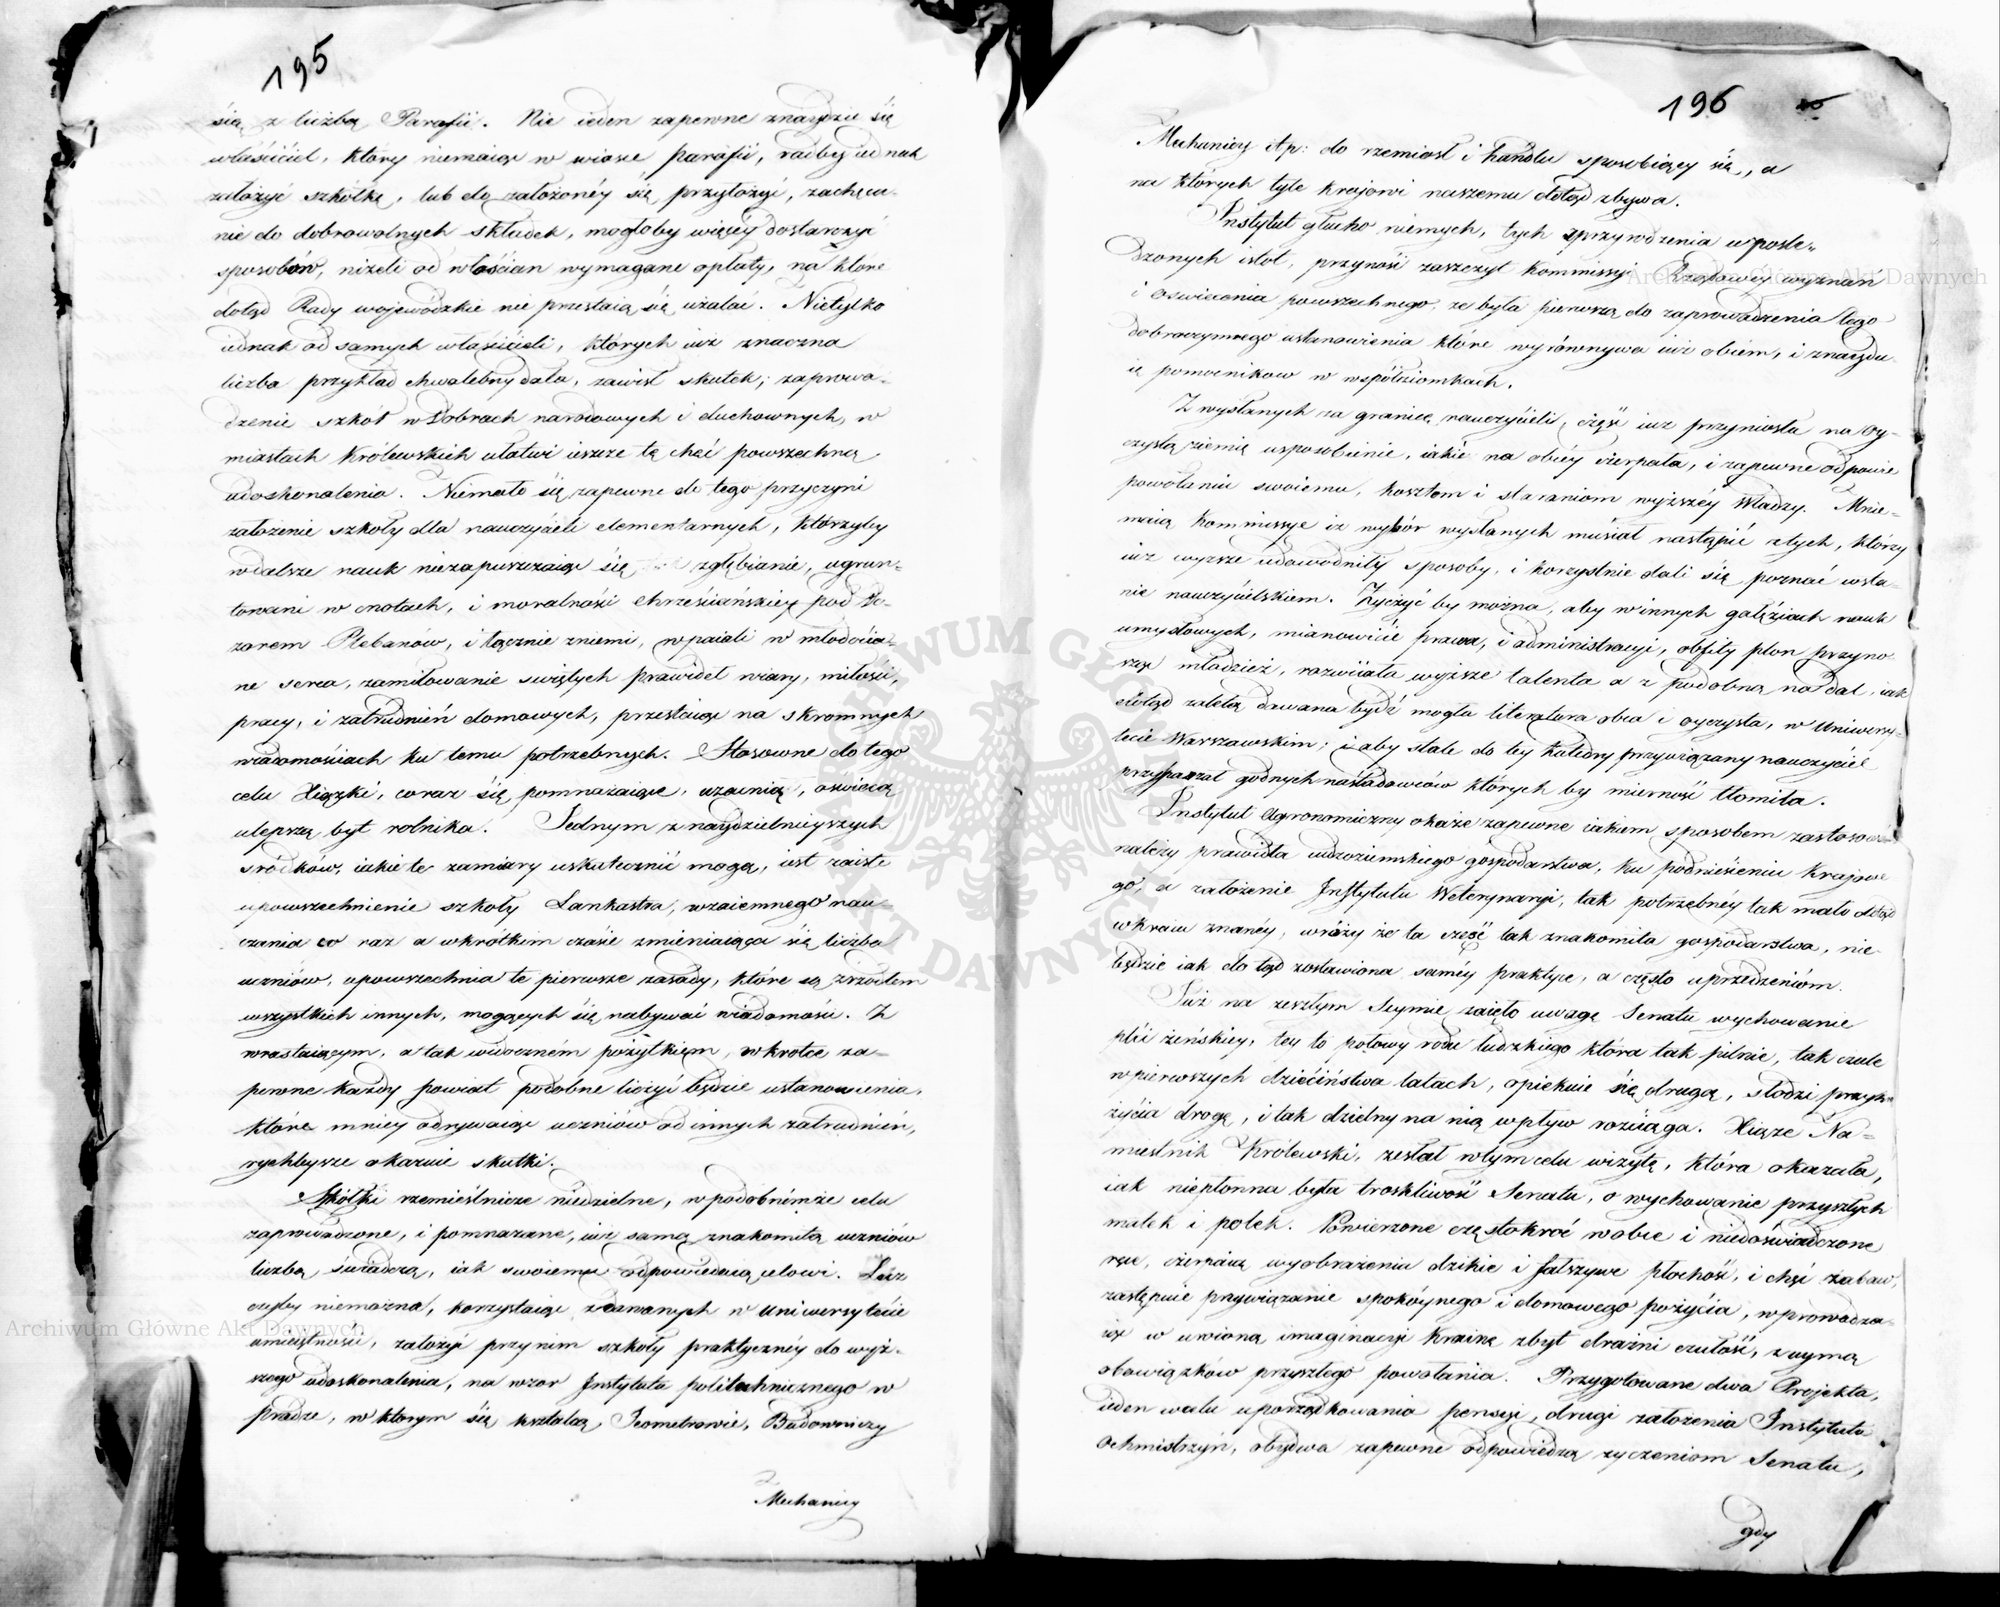 195
sią z liczbą Parafii. Nie ieden zapewne znaydzie się
właściciel, który niemaiąc w wiosce parafii, radby iednak
założyć szkółkę, lub do założonéy się przyłożyć, zachęca-
nie do dobrowolnych składek, mogłoby więcéy dostarczyć
sposobów, niżeli od włościan wymagane opłaty, na które
dotąd Rady wojewódzkie nie przestaią się użalać. Nietylko
iednak od samych właścicieli, których iuż znaczna
liczba przykład chwalebny dała, zawisł skutek; zaprowa-
dzenie szkół w Dobrach narodowych i duchownych, w
miastach Królewskich ułatwi ieszcze tę chęć powszechną
udoskonalenia. Niemało się zapewne do tego przyczyni
założenie szkoły dla nauczycieli elementarnych, którzyby
w dalsze nauk niezapuszczaiąc się zgłębianie, ugrun-
towani w cnotach, i moralności chrześciańskiey pod do-
zorem Plebanów, i łącznie zniemi, wpaiali w młodocia-
ne serca, zamiłowanie swiętych prawideł wiary, miłości,
pracy, i zatrudnień domowych, przestaiąc na skromnych
wiadomościach ku temu potrzebnych. Stosowne do tego
celu Xiążki, coraz się pomnażaiące, uzacnią, oświecą
ulepszą byt rolnika. Jednym z naydzielnieyszych
sródków, iakie te zamiary uskutecznić mogą, iest zaiste
upowszechnienie szkoły Lankastra, wzaiemnego nau-
czania co raz a wkrótkim czasie zmieniaiąca się liczba
uczniów, upowszechnia te pierwsze zasady, które są zrzodłem
wszystkich innych, mogących się nabywać wiadomości. Z
wzrastaiącym, a tak widoczném pożytkiem, wkrotce za-
pewne każdy powiat podobne liczyć będzie ustanowienia,
które mniey odrywaiąc uczniów od innych zatrudnień,
rychleysze okazuie skutki.
Szkółki rzemieślnicze niedzielne, w podobnémże celu
zaprowadzone, i pomnażane, iuż samą znakomitą uczniów
liczbą świadczą, iak swoiemu odpowiedaią celowi. Lecz
czyby niemożna, korzystaiąc z dawanych w Uniwersytecie
umieiętności, założyć przy nim szkoły praktycznéy do wyż-
szego udoskonalenia, na wzor Instytutu politechnicznego w
pradze, w ktorym się kształcą Jeometrowie, Budowniczy
Mechanicy
196
Mechanicy itp: do rzemiosł i handlu sposobiący się, a
na których tyle krajowi naszemu dotąd zbywa.
Instytut głucho niemych, tych zprzyrodzenia upośle-
dzonych istot, przynosi zaszczyt Kommissyi Rządowéy wyznań
i oswiecenia powszechnego, że była pierwszą do zaprowadzenia tego
dobroczynnego ustanowienia które wyrównywa iuż obcém, i znaydu-
ie pomocnikow w współziomkach.
Z wysłanych za granicę nauczycieli, część iuż przyniosła na oy-
czystą ziemię usposobienie, iakié na obcéy czerpała, i zapewne odpowie
powołaniu swoiemu, kosztom i staraniom wyższéy Władzy. Mnie-
maią Kommissye iż wybór wysłanych musiał nastąpić z tych, którzy
iuż wyższe udowodnili sposoby, i korzystnie dali się poznać w sta-
nie nauczycielskiem. Życzyć by można, aby w innych gałęziach nauk
umysłowych, mianowicie prawa, i administracyi, obfity plon przyno-
sząc młodzież, rozwiiała wyższe talenta a z podobną nadal, iak
dotąd zaletą dawana bydź mogła literatura obca i oyczysta, w Uniwersy-
tecie Warszawskim; i aby stale do tey katedry przywiązany nauczyciel
przysparzał godnych naśladowców których by mierność tłomiła.
Instytut Agronomiczny okaże zapewne iakiem sposobem zastosować
należy prawidła cudzoziemskiego gospodarstwa, ku podniesieniu krajowe-
go, a założenie Instytutu Weterynaryi, tak potrzebnéy tak mało dotąd
w kraiu znanéy, wróży że ta część tak znakomita gospodarstwa, nie-
będzie iak do tąd zostawiona saméy praktyce, a często uprzedzeniom.
Już na zeszłym Seymie zaięło uwagę Senatu wychowanie
płci żeńskiey, tey to połowy rodu ludzkiego która tak pilnie, tak czule
w pierwszych dzieciństwa latach, opiekuie się drugą, słodzi przykrą
życia drogę, i tak dzielny na nią wpływ rozciąga. Xiąże Na-
miestnik Królewski, zesłał w tym celu wizytę, która okazała,
iak niepłonna była troskliwość Senatu, o wychowanie przyszłych
matek i polek. Powierzone częstokroć w obce i niedoświadczone
ręce, czerpaią wyobrażenia dzikie i fałszywe płochość, i chęć zabaw,
zastępuie przywiązanie spokóynego i domowego pożycia, wprowadza-
iąc w uroioną imaginacyi krainę zbyt drażni czułość, z uymą
obowiązków przyszłego powołania. Przygotowane dwa Projekta,
ieden wcelu uporządkowania pensyi, drugi założenia Instytutu
Ochmistrzyń, obydwa zapewne odpowiedzą życzeniom Senatu,
gdy
Archiwum Główne Akt Dawnych
Archiwum Główne Akt Dawnych
ARCHIWUM GŁÓWNE AKT DAWNYCH